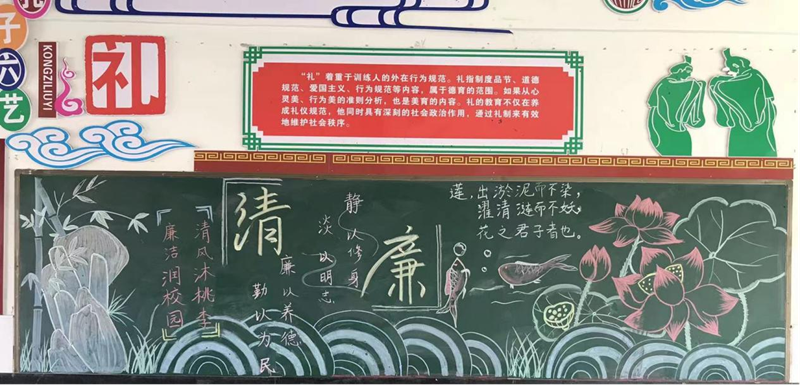 孔
子
六
艺
KONGZILIUYI
礼
“礼”着重于训练人的外在行为规范。礼指制度品节、道德
规范、爱国主义、行为规范等内容，属于德育的范围。如果从心
灵美、行为美的准则分析，也是美育的内容。礼的教育不仅在养
成礼仪规范，他同时具有深刻的社会政治作用，通过礼制来有效
地维护社会秩序。
清风沐桃李
廉洁润校园
清
廉以养德
勤以为民
静以修身
淡以明志
廉
莲，出淤泥而不染，
濯清涟而不妖。
花之君子者也。